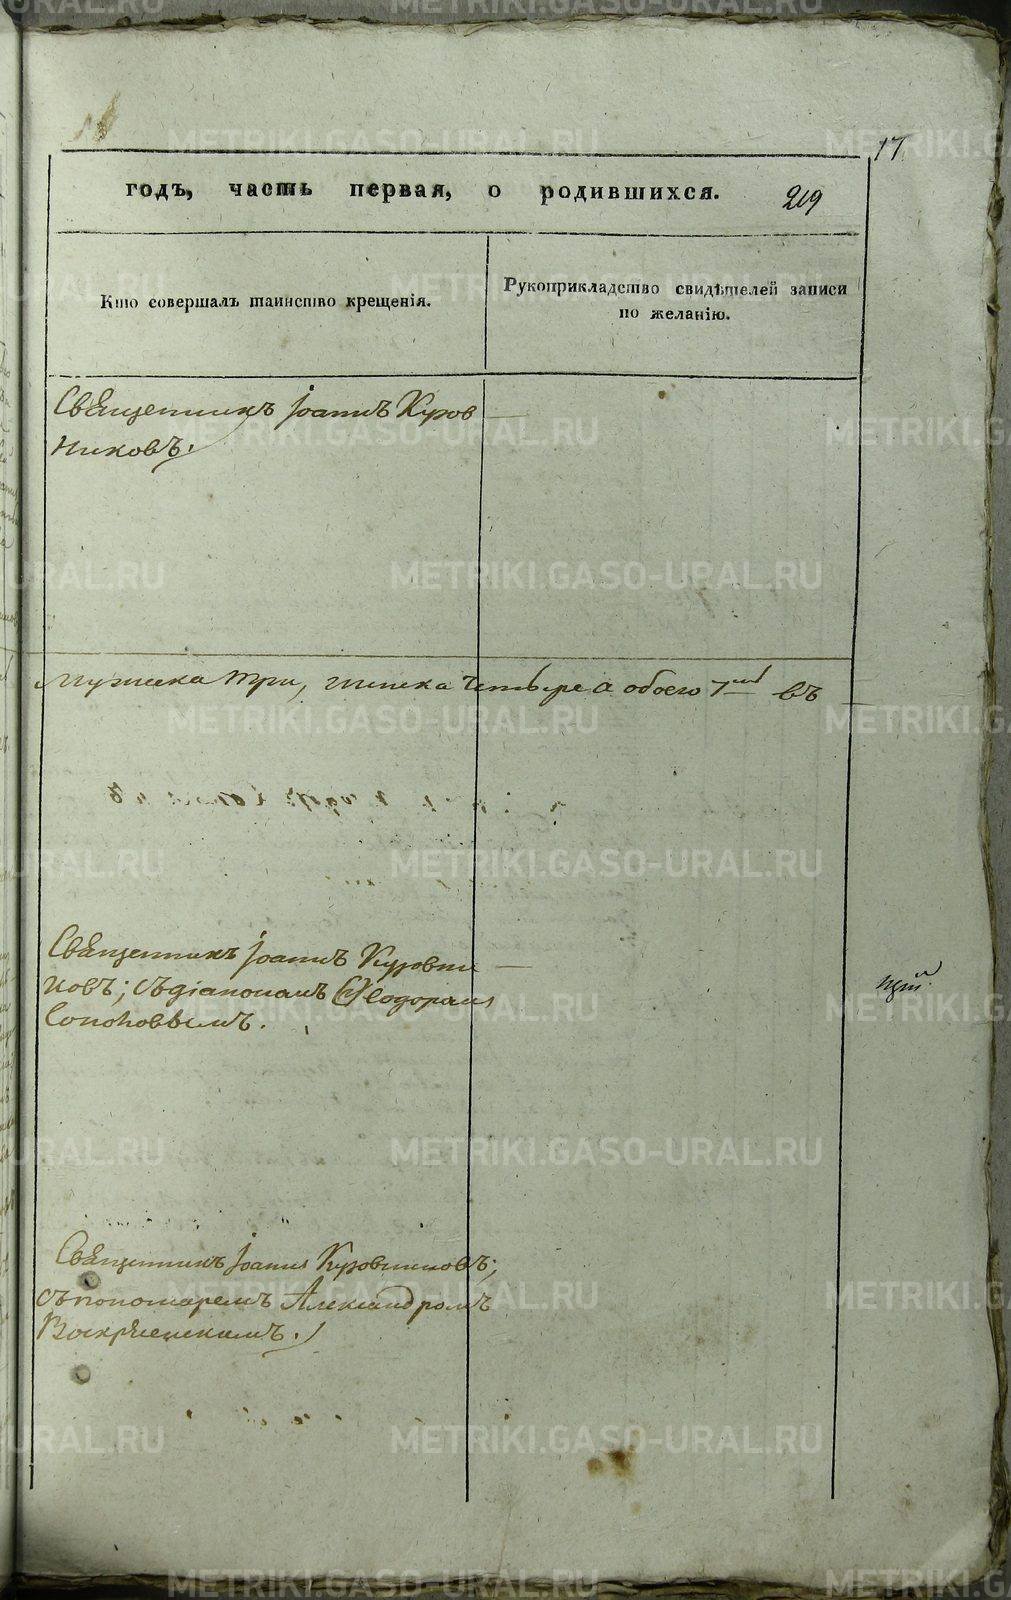 17
годъ, часть первая, о родившихся. 219
Кто совершалъ таинство крещенія.
Рукоприкладство свидѣтелей записи
по желанію.
Священникъ Іоаннъ Куров
никовъ.
Мужеска три, женска четыре а обоего 7мь въ
Священникъ Іоаннъ Куровни
ковъ; съ діакономъ Ѳеодоромъ
Сопоновымъ.
Священникъ Іоаннъ Куровниковъ;
съ пономаремъ Александромъ
Воскресенскимъ.
METRIKI.GASO-URAL.RU